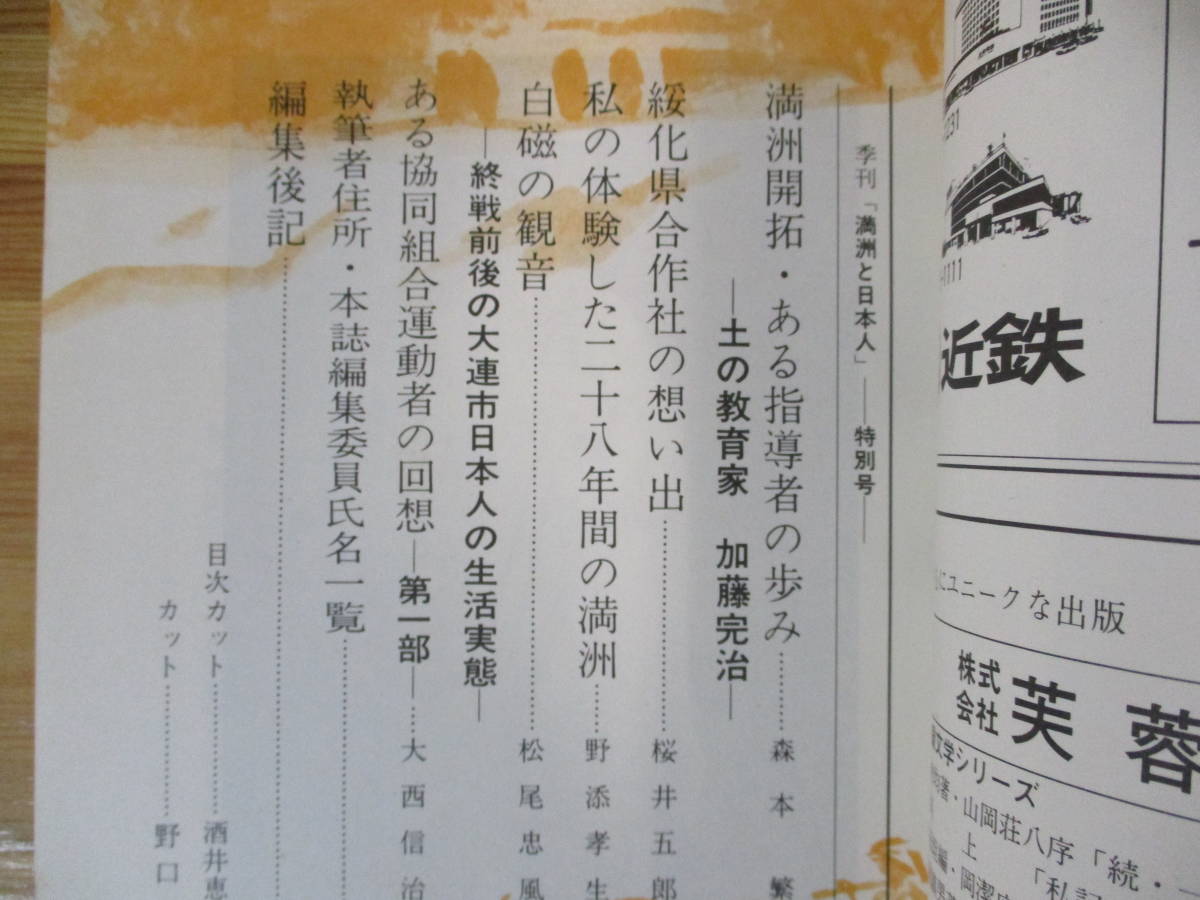 近鉄
にユニークな出版
株式会社 芙蓉
文学シリーズ
著・山岡荘八序「続・
上 「私記
編・岡潔
季刊「満洲と日本人」――特別号――
満洲開拓・ある指導者の歩み……森本繁
――土の教育家 加藤完治――
綏化県合作社の想い出……桜井五郎
私の体験した二十八年間の満洲……野添孝生
白磁の観音……松尾忠風
――終戦前後の大連市日本人の生活実態――
ある協同組合運動者の回想――第一部――……大西信治
執筆者住所・本誌編集委員氏名一覧……
編集後記……
目次カット……酒井恵
カット……野口